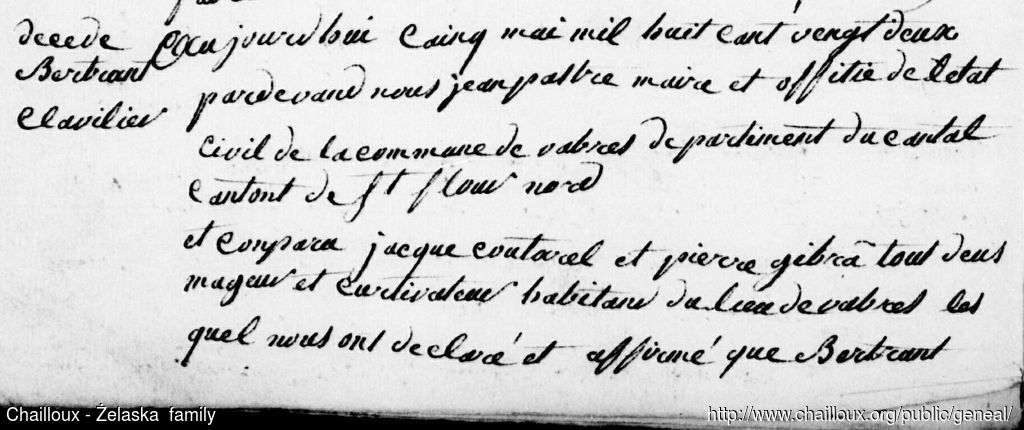 decede
Bertrant
Clavilier
aujourdhui Cainq mai mil huit cant vengt deux
pardevand nous jean pastre maire et offitie de letat
Civil de la commune de vabres departiment du cantal
Cantont de St flour nord
et Conparu jacque coutarel et pierre gibra tout deus
mageur et Curtivateur habitans du lieu de vabres les
quel nous ont declaré et affirmé que Bertrant
Chailloux - Żelaska family
http://www.chailloux.org/public/geneal/